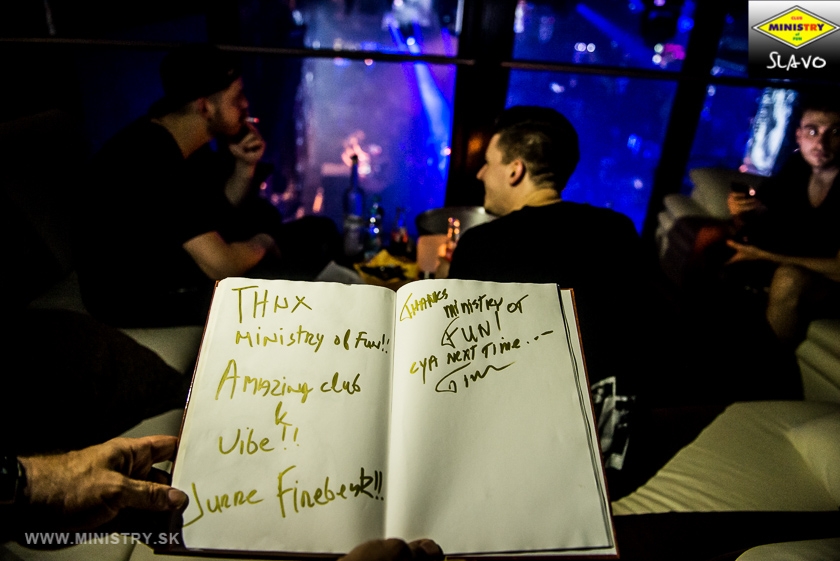 CLUB
MINISTRY
of
FUN
SLAVO
THNX
MINISTRY of FUN!!
AMAZING club
&
Vibe!!
THANKS MINISTRY OF
FUN!
CYA NEXT TIME...
WWW.MINISTRY.SK